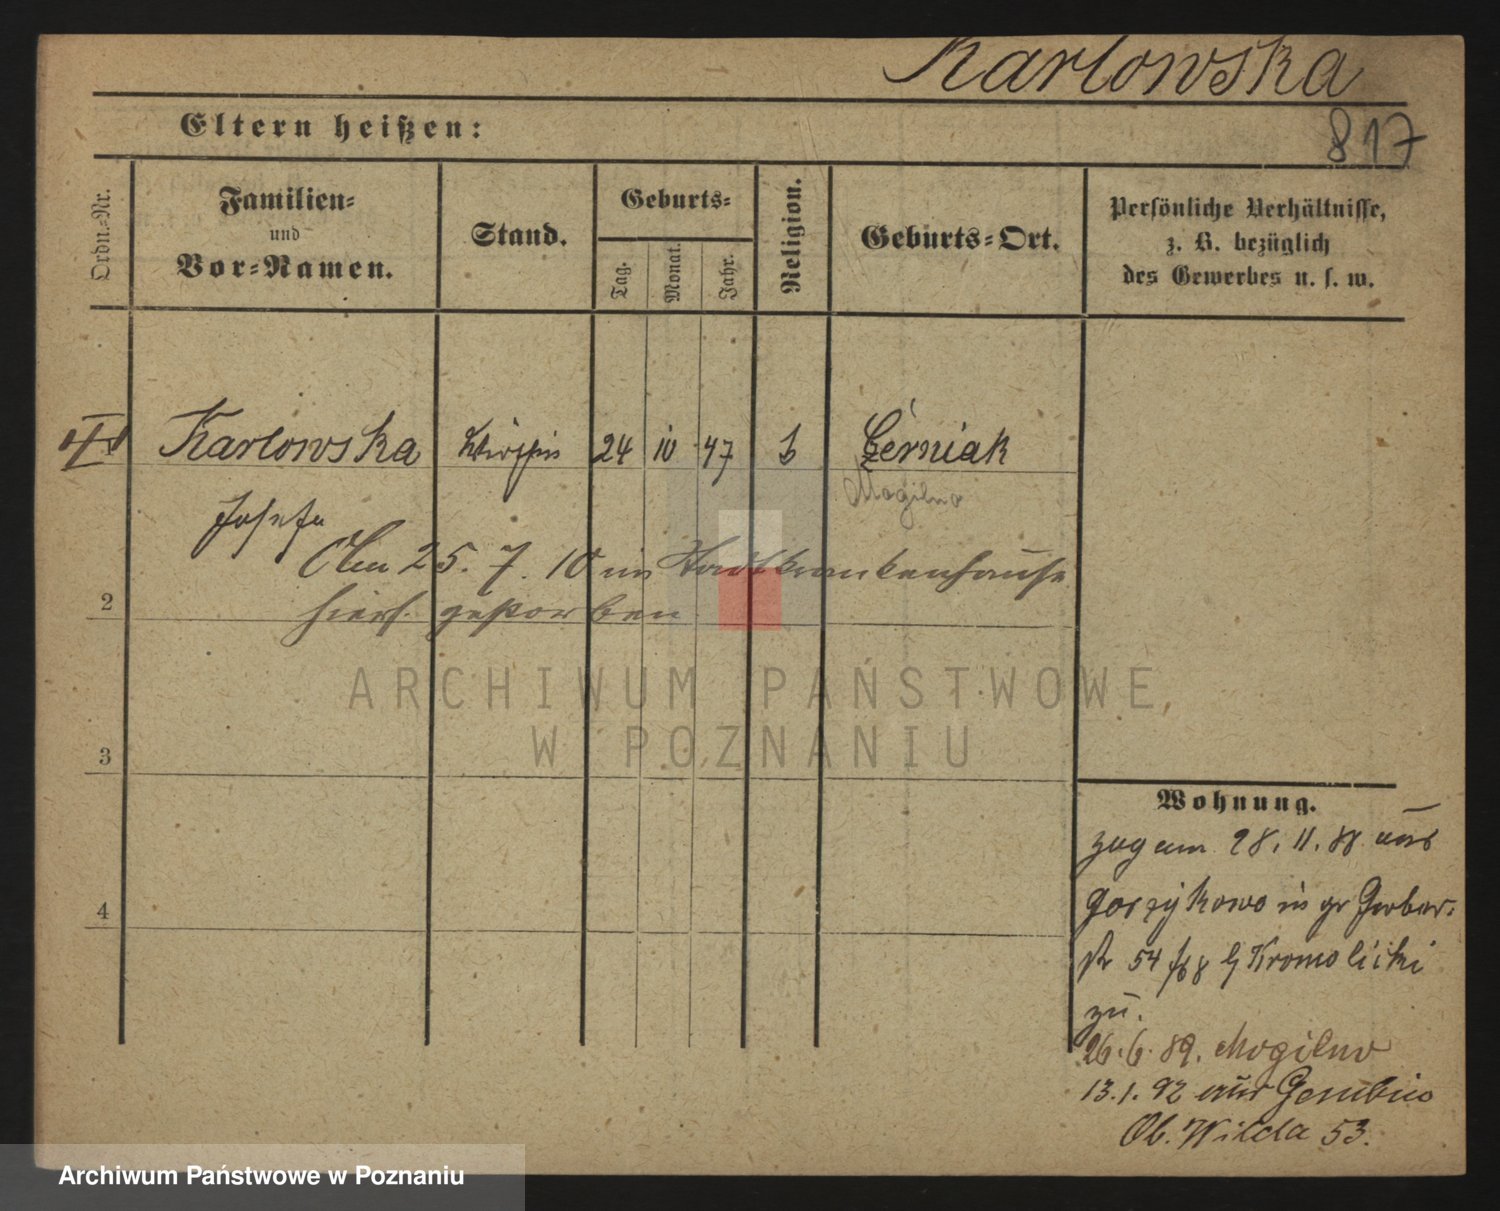 Karlowska
817
Eltern heißen:
Ordn.-Nr.
Familien-
und
Vor-Namen.
Stand.
Geburts-
Tag.
Monat.
Jahr.
Religion.
Geburts-Ort.
Persönliche Verhältnisse,
z. B. bezüglich
des Gewerbes u. s. w.
Karlowska
24
10
47
Czerniak
Mogilno
Josefa
Am 25. 7. 10 im Stadtkrankenhause
2
hiers. gestorben
ARCHIWUM PAŃSTWOWE
W POZNANIU
3
Wohnung.
zog am 28. 11. 88 aus
Gorzykowo in gr Gerber-
4
str 54 b Kromolicki
zu.
26. 6. 89. Mogilno
13. 1. 92 aus Gembice
Ob. Wilda 53.
Archiwum Państwowe w Poznaniu